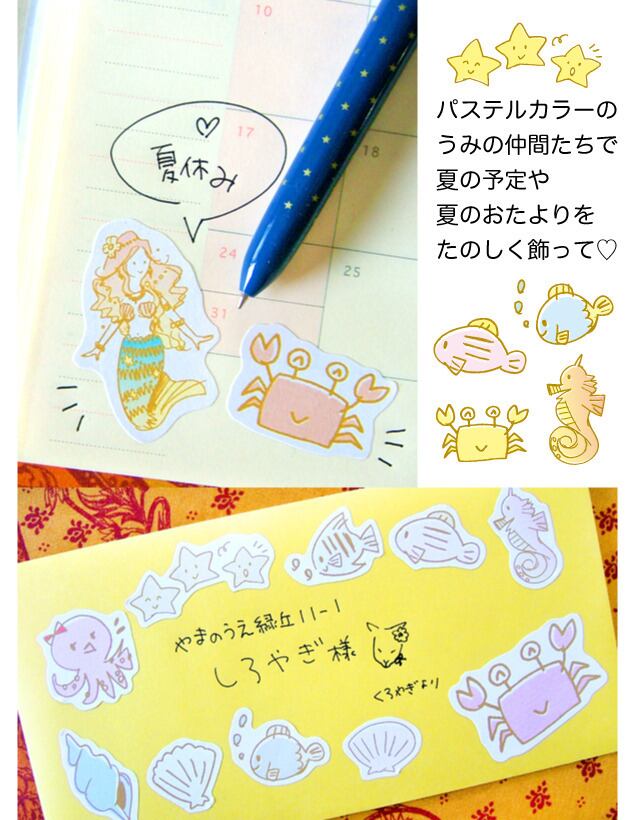 10
17
18
24
25
31
夏休み
パステルカラーの
うみの仲間たちで
夏の予定や
夏のおたよりを
たのしく飾って♡
やまのうえ緑丘11-1
しろやぎ様
くろやぎより